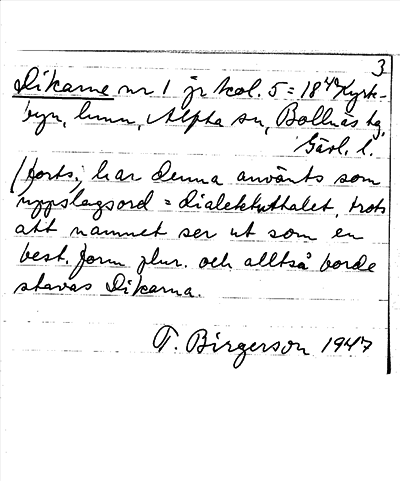 3
Dikarne nr 1 jr kol. 5 = 18 Kyrk-
byn, hmn, Alpha sn, Bollnäs tg,
Gävl. l.
/forts./ har denna använts som
uppslagsord = dialektuttalet, trots
att namnet ser ut som en
best. form plur. och alltså borde
stavas Dikarna.
T. Birgerson 1947